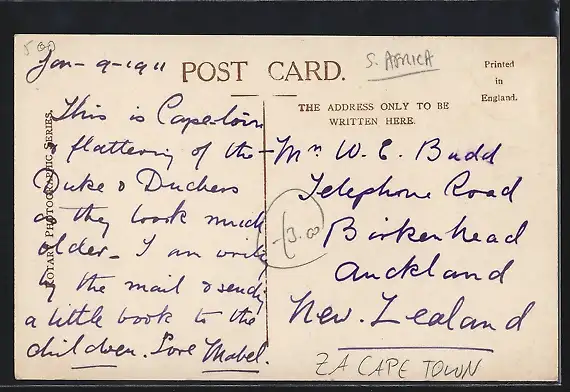 500
Jan - 9 - 1911
POST CARD.
S. AFRICA
Printed
in
England.
THE ADDRESS ONLY TO BE
WRITTEN HERE.
ROTARY PHOTOGRAPHIC SERIES.
This is Cape-town
& flattering of the
Duke & Duchess
as they look much
older - I am writing
by the mail & sending
a little book to the
children. Love Mabel.
Mrs W. E. Budd
Telephone Road
Birkenhead
Auckland
New. Zealand
3.00
ZA CAPE TOWN